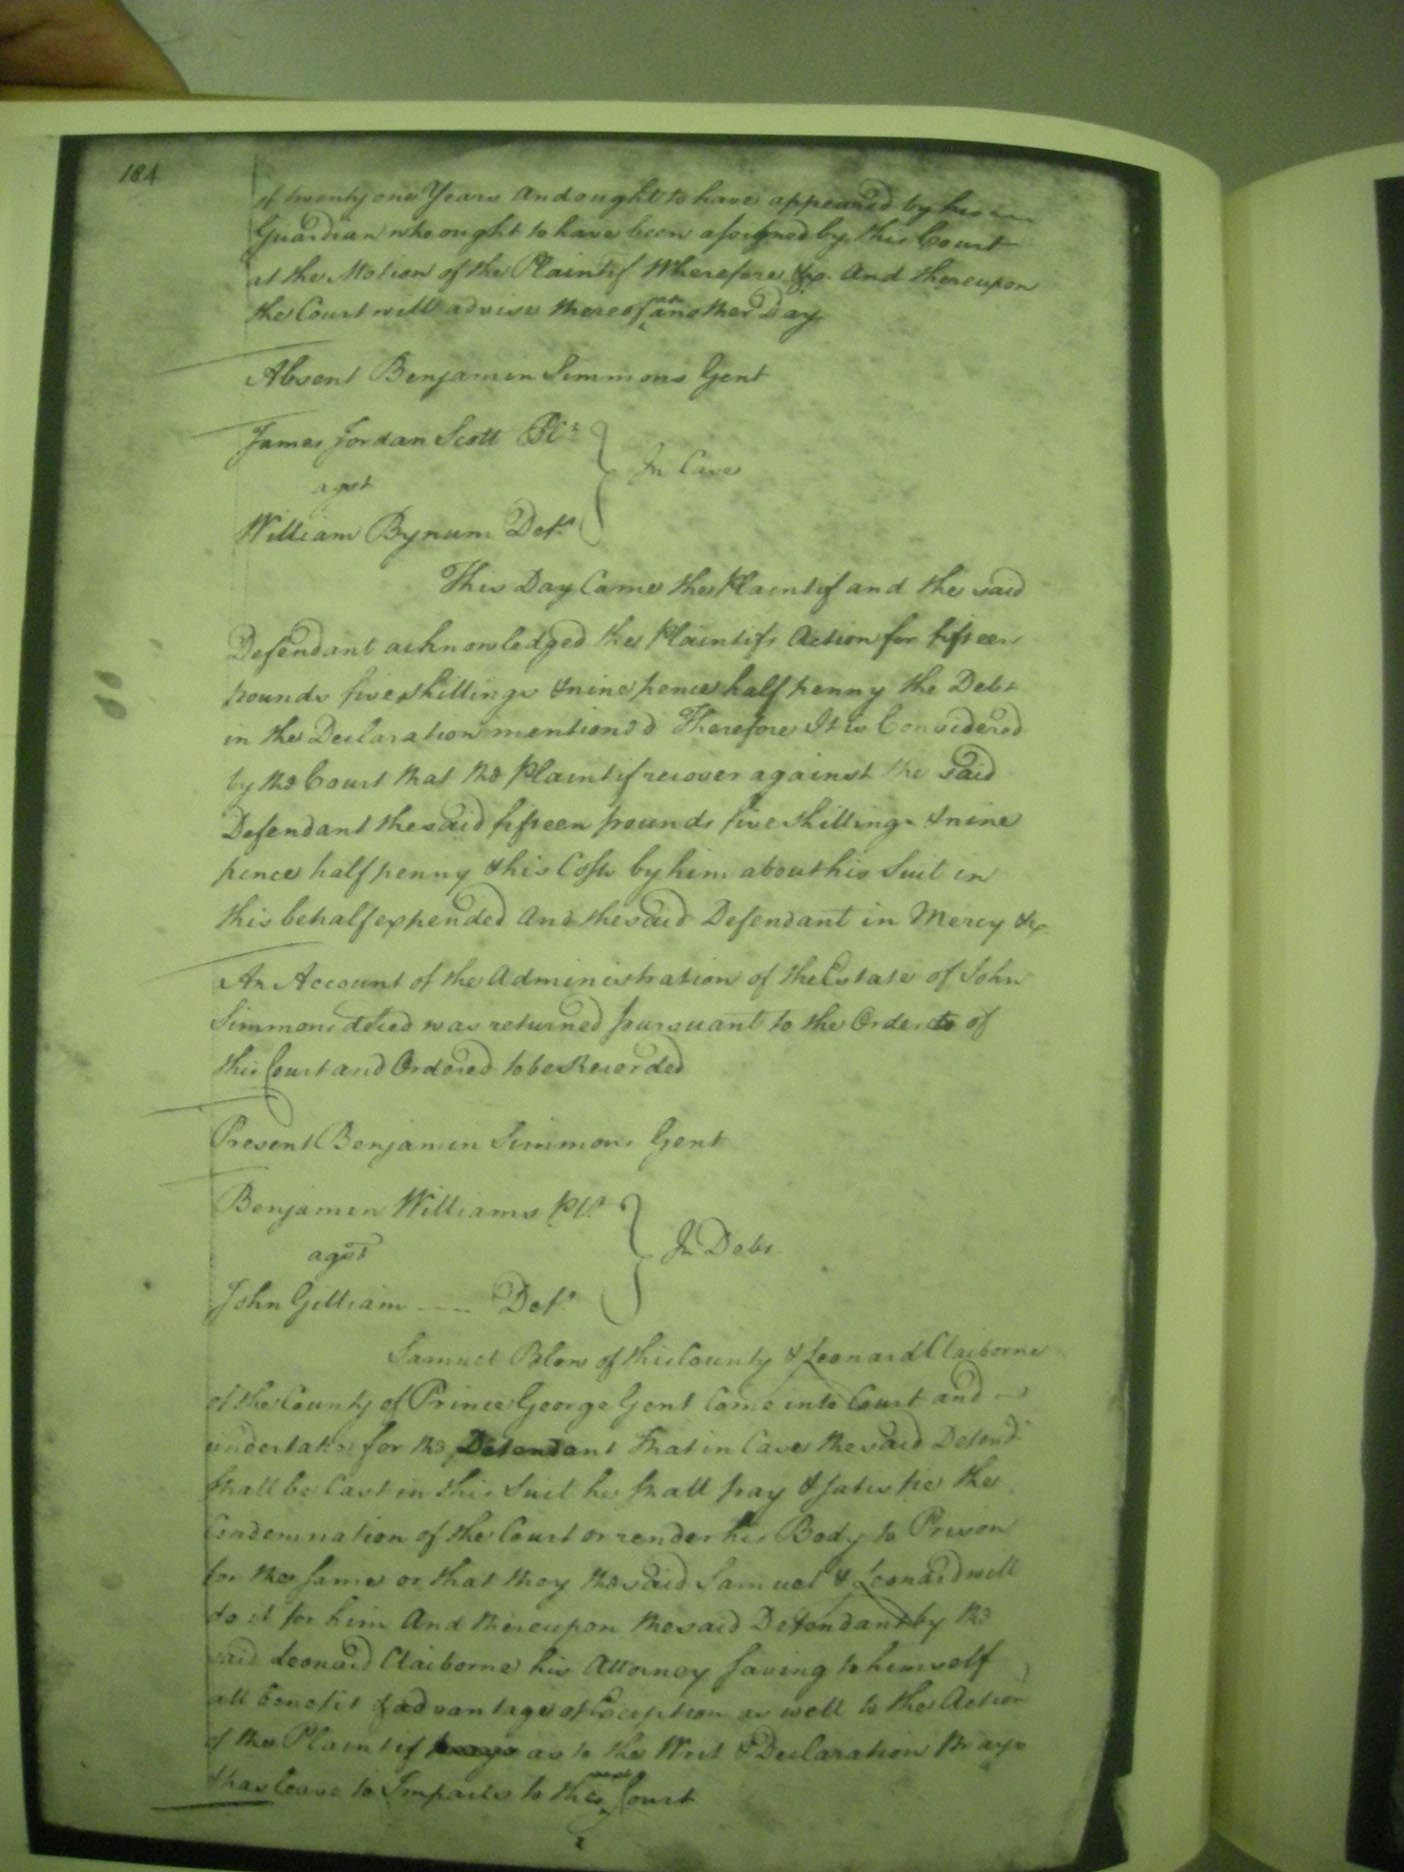 184
of twenty one Years and ought to have appeared by his
Guardian who ought to have been assigned by this Court
at the Motion of the Plaintif Wherefore &c. And thereupon
the Court will advise thereof till another Day
Absent Benjamin Simmons Gent
James Jordan Scott Plt
agst
William Bynum Deft
In Case
This Day Came the Plaintif and the said
Defendant acknowledged the Plaintifs Action for fifteen
pounds five shillings & nine pence half penny the Debt
in the Declaration mention'd Therefore It is Considered
by the Court that the Plaintif recover against the said
Defendant the said fifteen pounds five shillings & nine
pence half penny & his Costs by him about his Suit in
this behalf expended And the said Defendant in Mercy &c.
An Account of the Administration of the Estate of John
Simmons deced was returned pursuant to the Order of
this Court and Ordered to be Recorded
Present Benjamin Simmons Gent
Benjamin Williams Plt
agst
John Gilliam ---- Deft
In Debt
Samuel Blow of this County & Leonard Claiborne
of the County of Prince George Gent Came into Court and
undertakes for the Defendant That in Case the said Defendt
shall be Cast in this Suit he shall pay & satisfie the
Condemnation of the Court or render his Body to Prison
for the same or that they the said Samuel & Leonard will
do it for him And thereupon the said Defendant by the
said Leonard Claiborne his Attorney saving to himself
all benefit & advantage of Exception as well to the Action
of the Plaintif as to the Writ & Declaration Prays
& has Leave to Imparle to the next Court